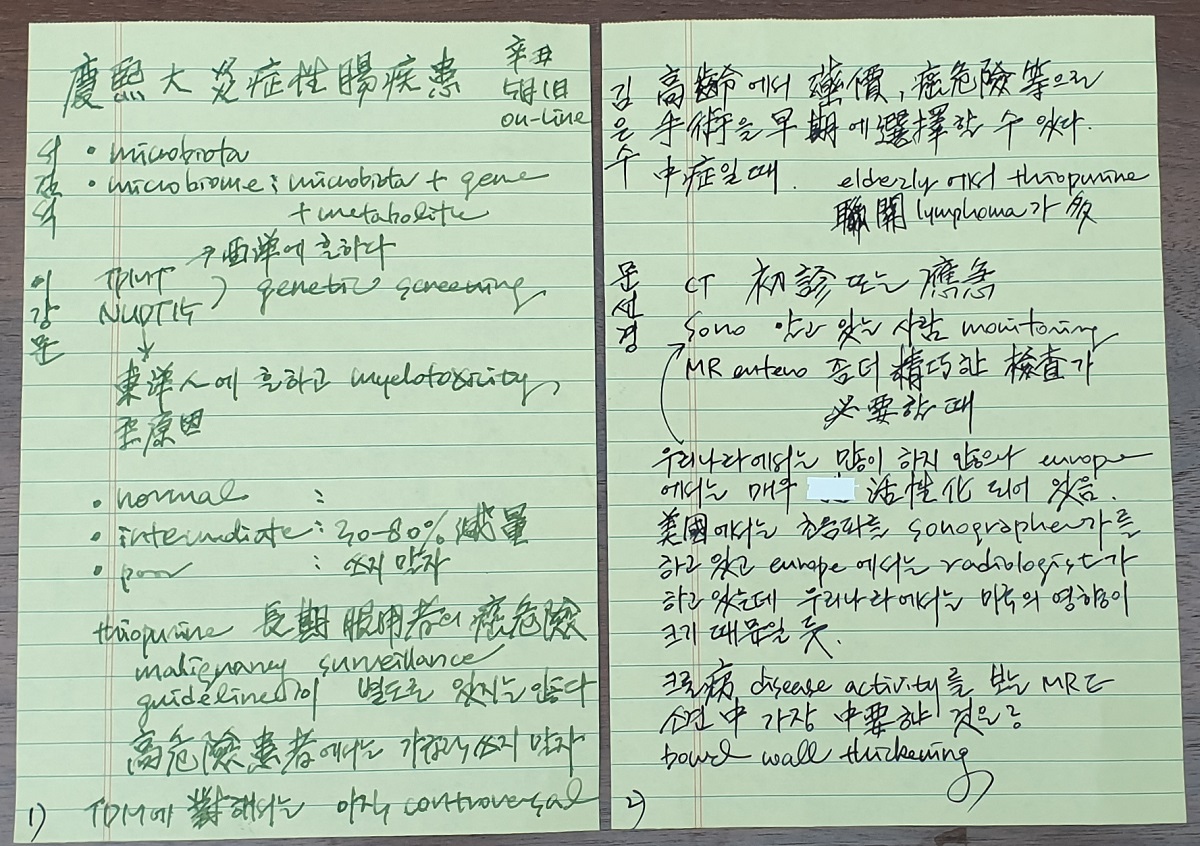 慶熙大 炎症性腸疾患
辛丑
5月1日
on-line
• microbiota
• microbiome : microbiota + gene
+ metabolite
→ 西洋에 흔하다
이창균
TPMT
NUDT15
) genetic screening
↓
東洋人에 흔하고 myelotoxicity,
主原因
• normal :
• intermediate : 30-80% 減量
• poor : 쓰지 말자
thiopurine 長期 服用者의 癌危險
malignancy surveillance
guideline이 별도로 있지는 않다
高危險患者에서는 가급적 쓰지 말자
1) TDM에 對해서는 아직 controversal
김은수
高齡에서 藥價, 癌危險 等으로
手術을 早期에 選擇할 수 있다.
中症일 때.
elderly에서 thiopurine
聯關 lymphoma가 多
문선경
CT 初診 또는 應急
Sono 앓고 있는 사람 monitoring
MR entero 좀더 精巧한 檢査가
必要할 때
우리나라에서는 많이 하지 않으나 europe
에서는 매우 活性化 되어 있음.
美國에서는 초음파를 sonographer가를
하고 있고 europe에서는 radiologist가
하고 있는데 우리나라에서는 미국의 영향이
크기 때문일 듯.
크론病 disease activity를 보는 MRE
소견 中 가장 中要한 것은
bowel wall thickening
2)